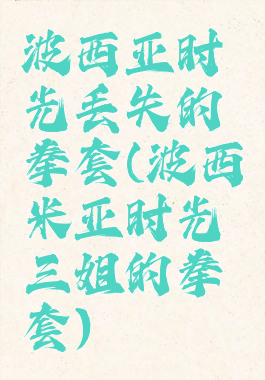 波西亚时
光丢失的
拳套(波西
米亚时光
三姐的拳
套)